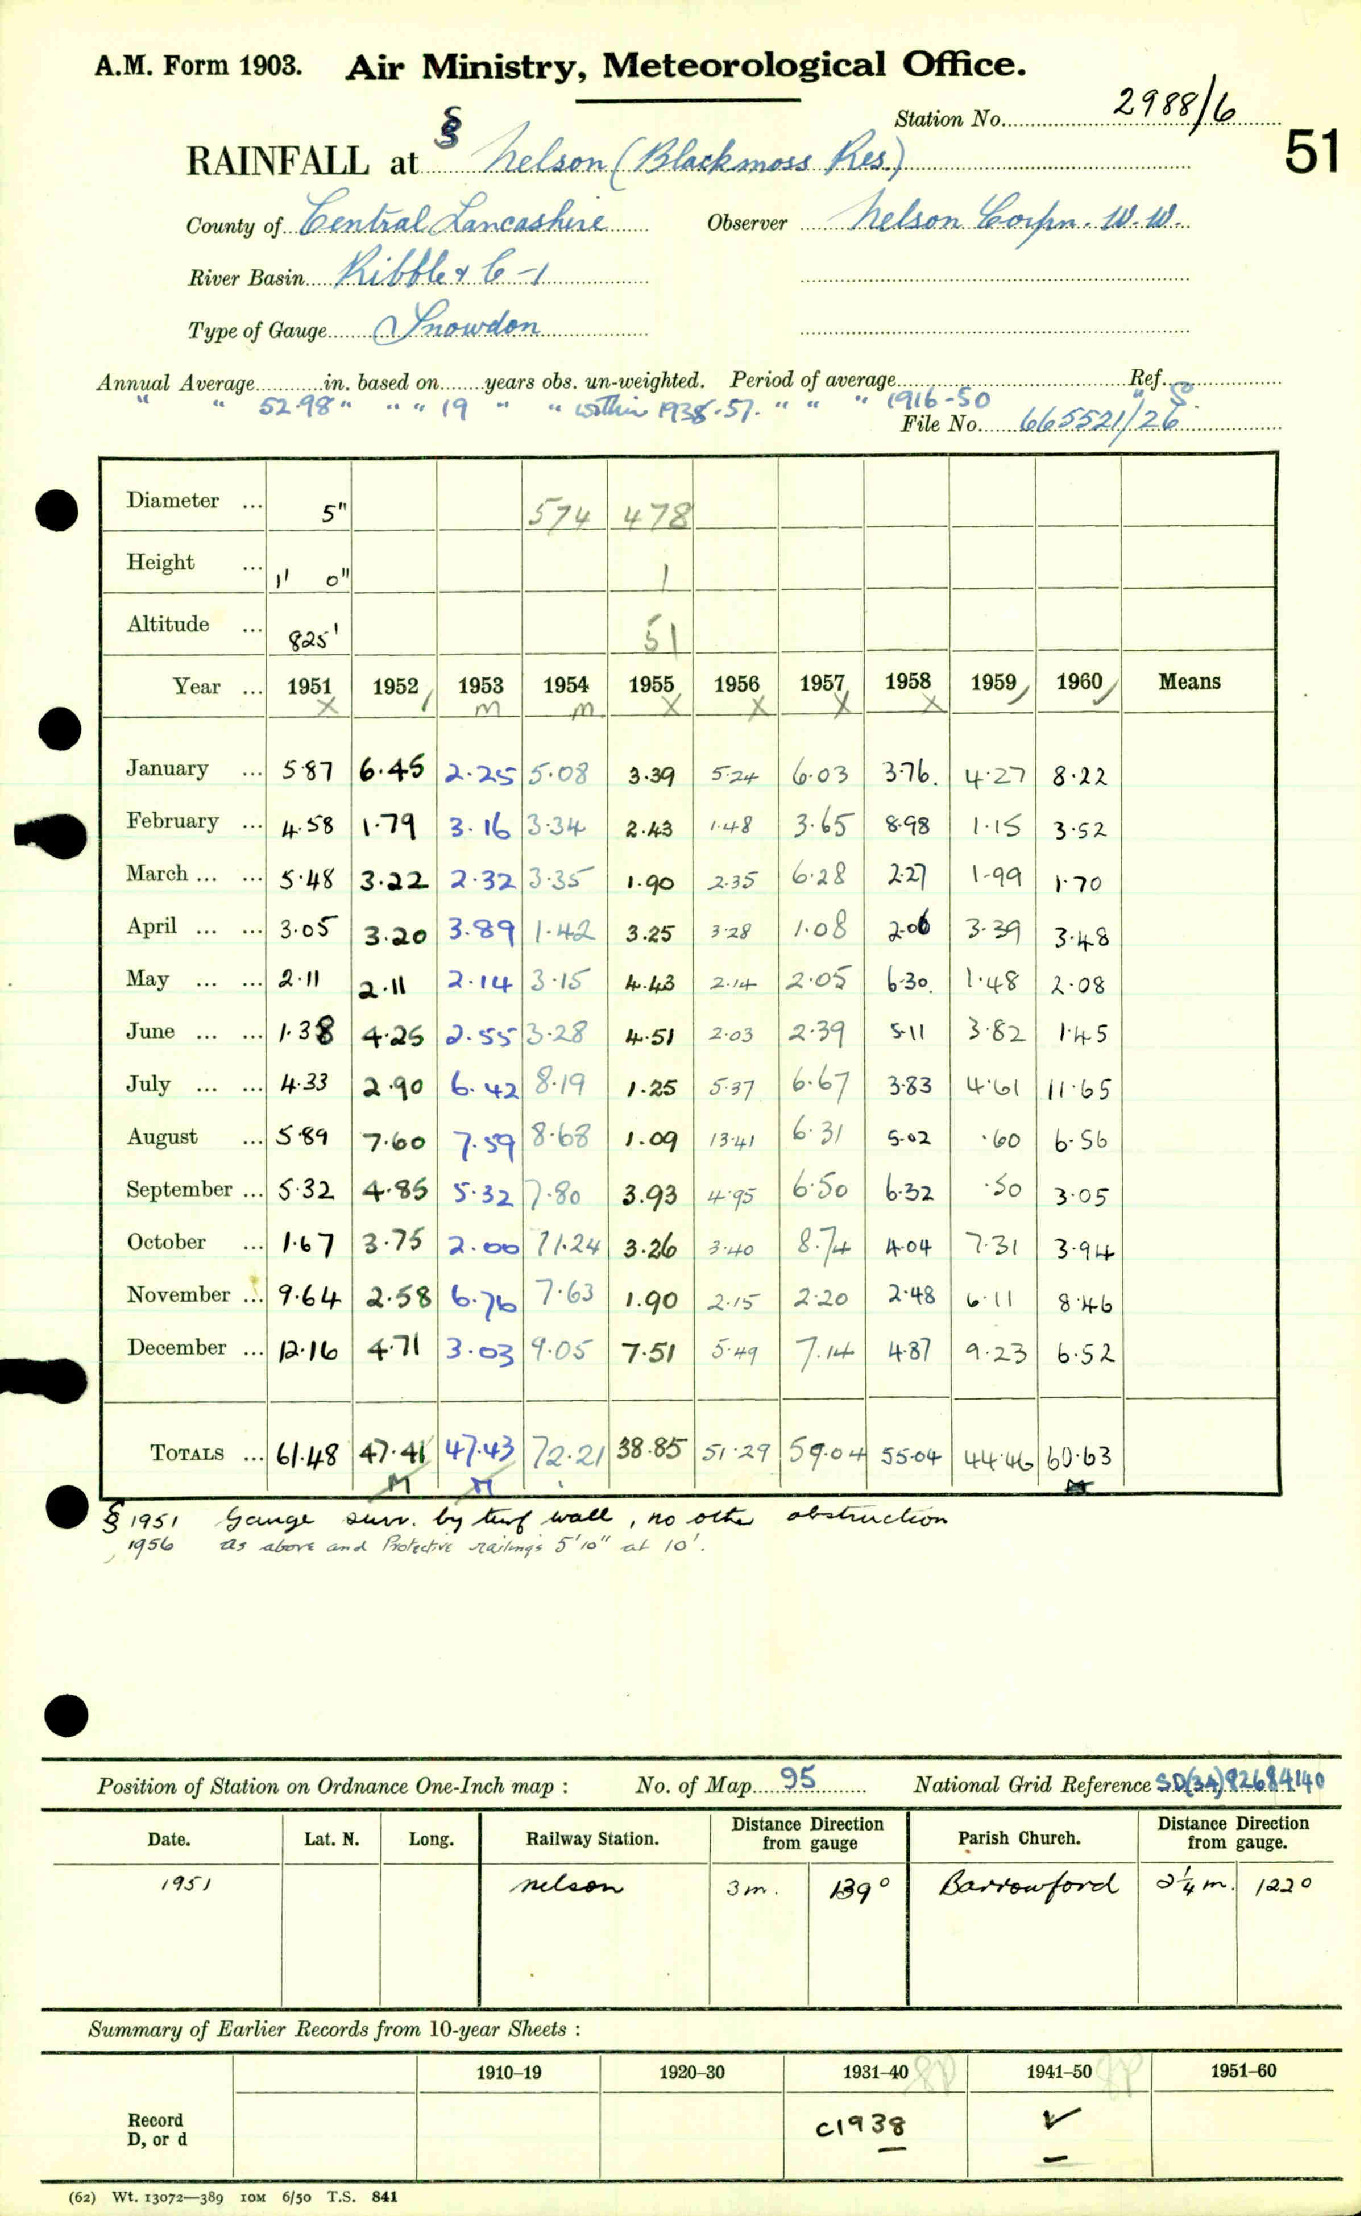 A.M. Form 1903. Air Ministry, Meteorological Office.
Station No. 2988/6
51
RAINFALL at § Nelson (Blackmoss Res.)
County of Central Lancashire Observer Nelson Corpn. W.W.
River Basin Ribble & C-1
Type of Gauge Snowdon
Annual Average in. based on years obs. un-weighted. Period of average Ref.
" " 52.98 " " " " 19 " " within 1938-57. " " " 1916-50 "
File No. 665521/26
Diameter ... 5" 574 478
Height ... 1' 0" 1
Altitude ... 825' 51
Year ... 1951 1952 1953 1954 1955 1956 1957 1958 1959 1960 Means
X / m m X X X X / /
January ... 5.87 6.45 2.25 5.08 3.39 5.24 6.03 3.76 4.27 8.22
February ... 4.58 1.79 3.16 3.34 2.43 1.48 3.65 8.98 1.15 3.52
March ... ... 5.48 3.22 2.32 3.35 1.90 2.35 6.28 2.27 1.99 1.70
April ... ... 3.05 3.20 3.89 1.42 3.25 3.28 1.08 2.06 3.39 3.48
May ... ... 2.11 2.11 2.14 3.15 4.43 2.14 2.05 6.30 1.48 2.08
June ... ... 1.38 4.25 2.55 3.28 4.51 2.03 2.39 5.11 3.82 1.45
July ... ... 4.33 2.90 6.42 8.19 1.25 5.37 6.67 3.83 4.61 11.65
August ... 5.89 7.60 7.59 8.68 1.09 13.41 6.31 5.02 .60 6.56
September ... 5.32 4.85 5.32 7.80 3.93 4.95 6.50 6.32 .50 3.05
October ... 1.67 3.75 2.00 11.24 3.26 3.40 8.74 4.04 7.31 3.94
November ... 9.64 2.58 6.76 7.63 1.90 2.15 2.20 2.48 6.11 8.46
December ... 12.16 4.71 3.03 9.05 7.51 5.49 7.14 4.87 9.23 6.52
TOTALS ... 61.48 47.41 47.43 72.21 38.85 51.29 59.04 55.04 44.46 60.63
M M
§ 1951 Gauge surr. by turf wall, no other obstruction
1956 as above and Protective railings 5'10" at 10'.
Position of Station on Ordnance One-Inch map : No. of Map 95 National Grid Reference SD(34)82684140
Date. Lat. N. Long. Railway Station. Distance Direction from gauge Parish Church. Distance Direction from gauge.
1951 Nelson 3m. 139° Barrowford 2¼ m. 122°
Summary of Earlier Records from 10-year Sheets :
1910–19 1920–30 1931–40 1941–50 1951–60
Record
D, or d c1938 ✓
(62) Wt. 13072—389 10M 6/50 T.S. 841